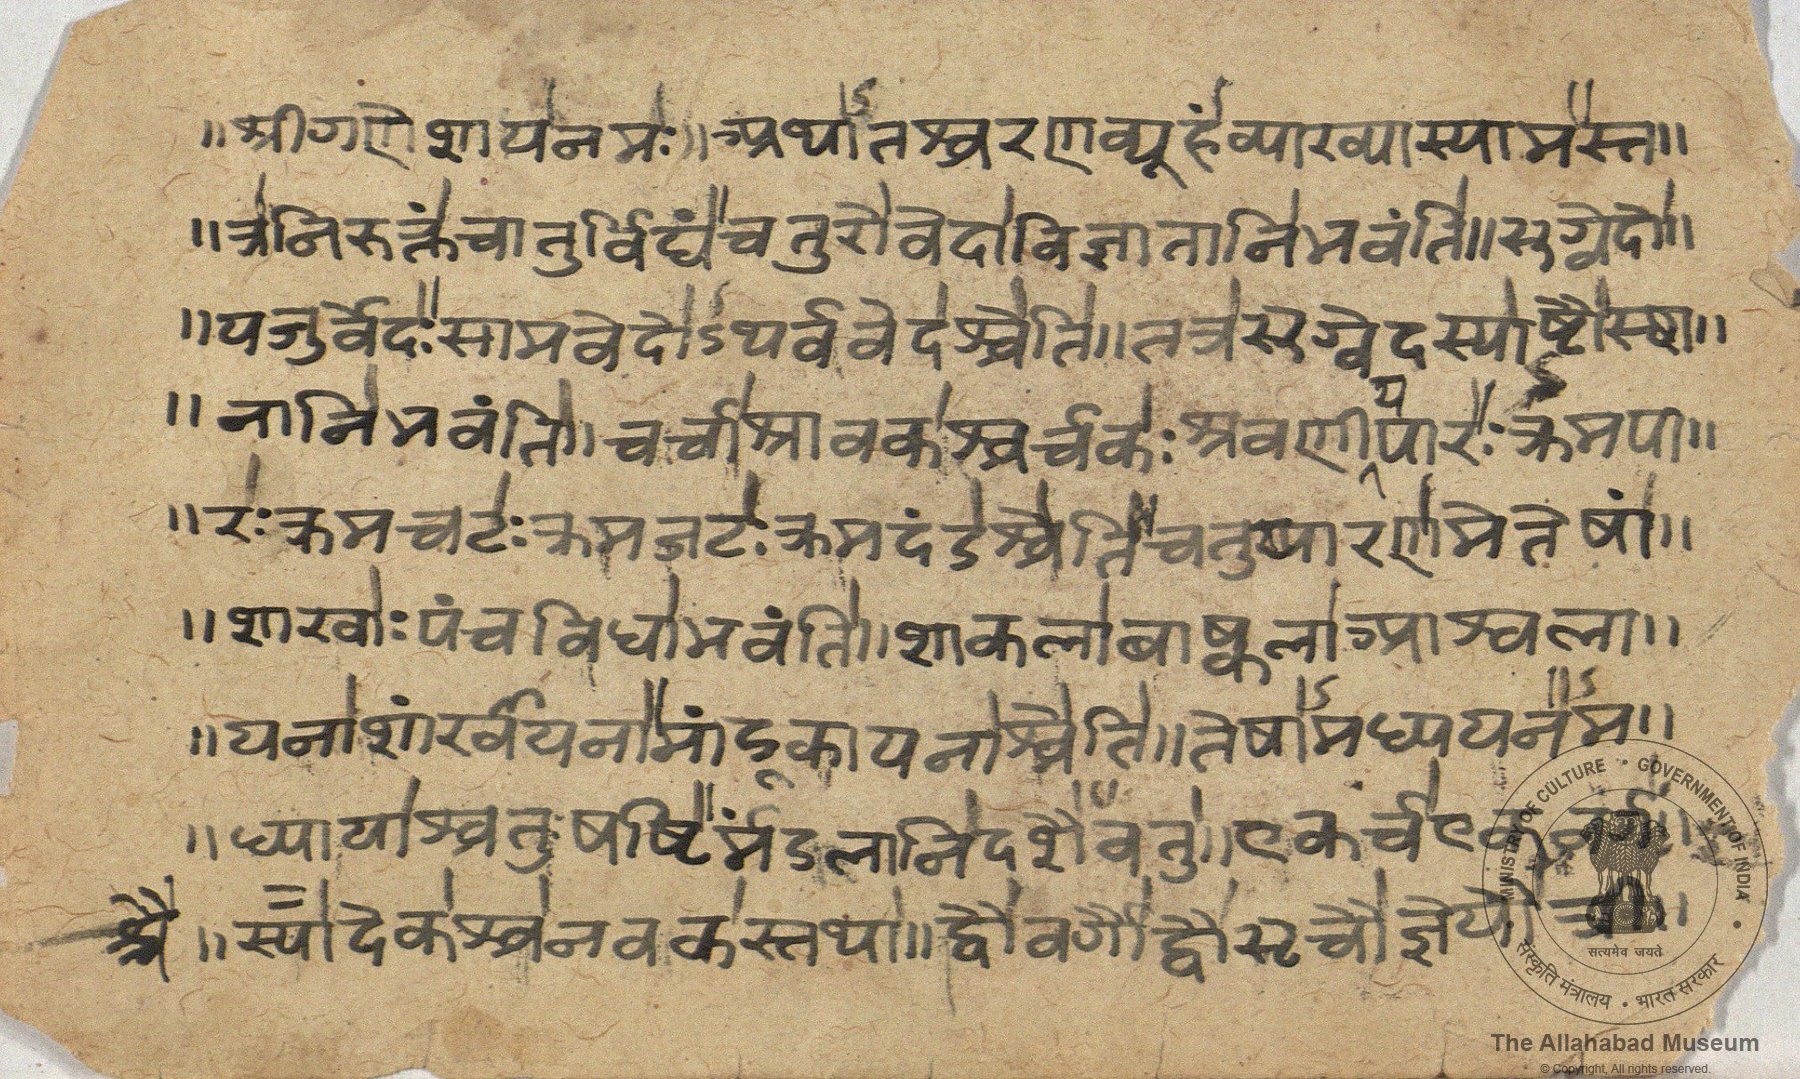 ॥श्रीगणेशायनमः॥अथातश्चरणव्यूहंव्याख्यास्यामस्त॥
॥त्रनिरुक्तंचातुर्विघ्यंचतुरोवेदाविज्ञातानिभवंति॥ऋग्वेदो॥
॥यजुर्वेदःसामवेदोऽथर्ववेदश्चेति॥तत्रऋग्वेदस्याष्टौस्था॥
॥नानिभवंति॥चर्चाश्रावकश्चर्चकःश्रवणीयपारःक्रमपा॥
॥रःक्रमचटःक्रमजटःक्रमदंडश्चेतिचतुष्पारणमेतेषां॥
॥शाखाःपंचविधाभवंति॥शाकलाबाष्कलाआश्वला॥
॥यनाशांखायनामांडूकायनाश्चेति॥तेषामध्ययनम॥
॥ध्यायाश्चतुःषष्टिर्मंडलानिदशैवतु॥एकर्चएकवर्ग॥
श्चै॥स्यादेकश्चनवकस्तथा॥द्वौवर्गौद्वौऋचौज्ञेयौ
MINISTRY OF CULTURE • GOVERNMENT OF INDIA •
सत्यमेव जयते
संस्कृति मंत्रालय • भारत सरकार
The Allahabad Museum
© Copyright, All rights reserved.